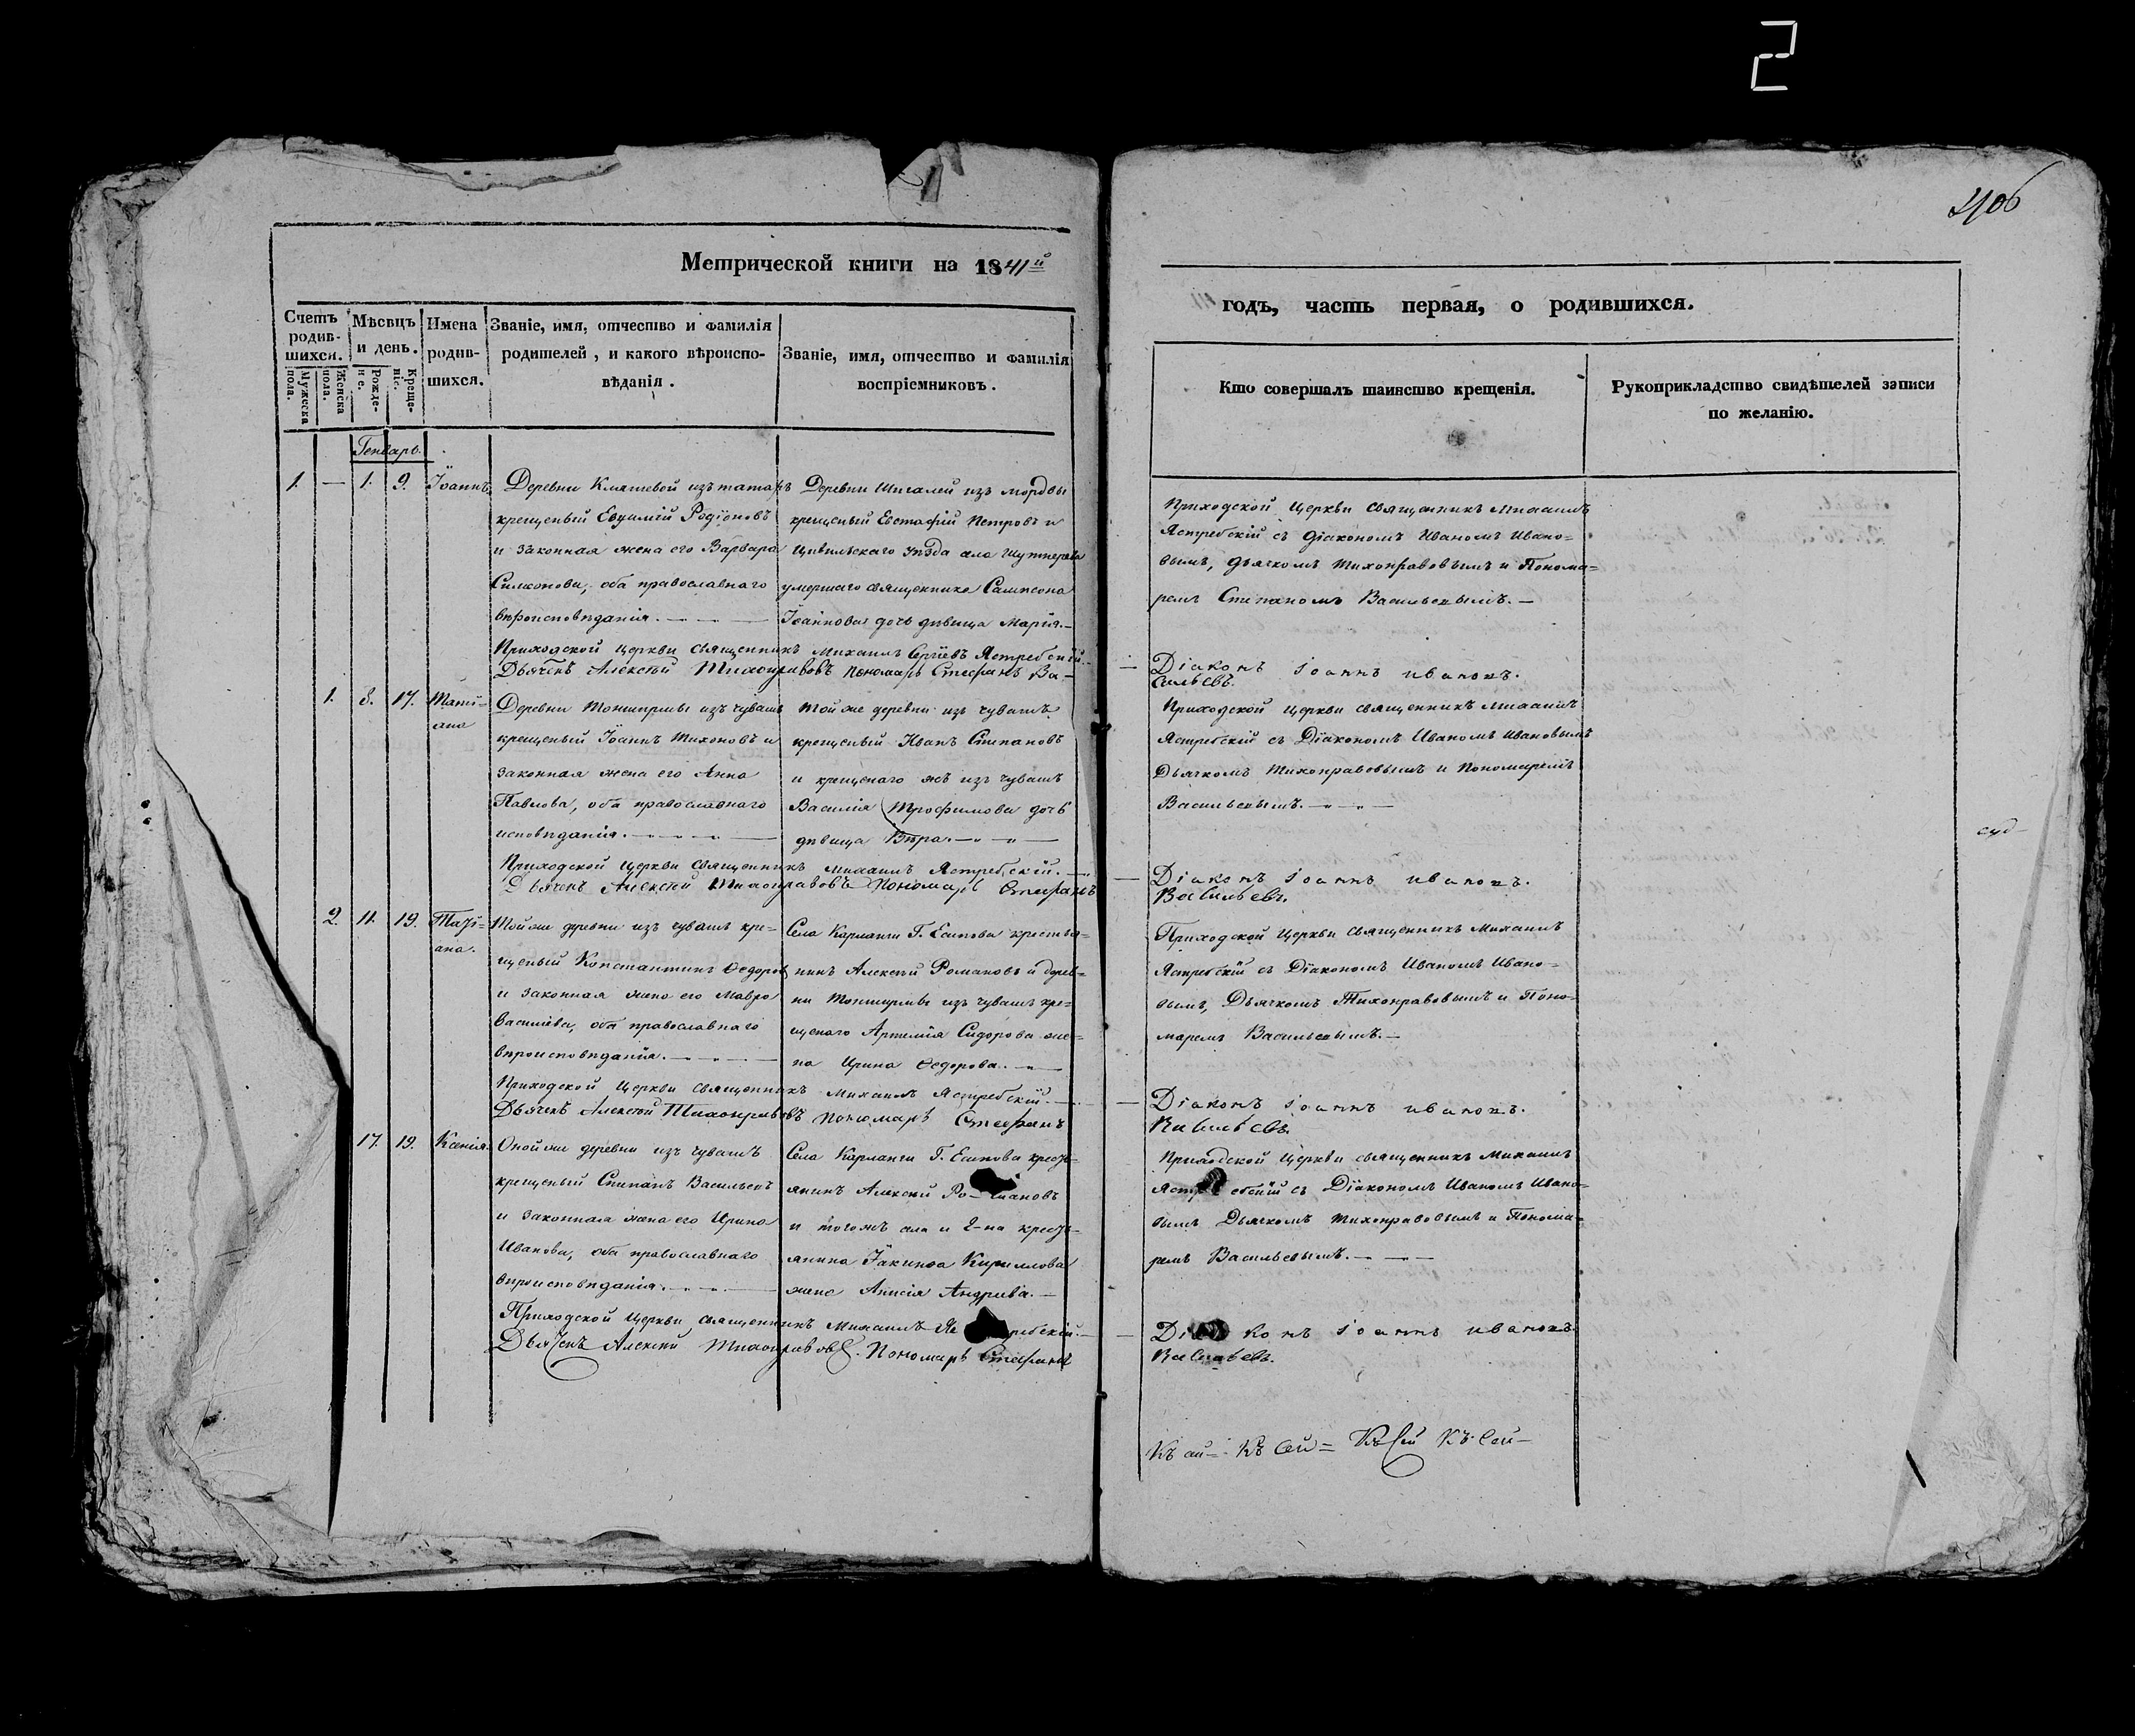 2
406
Метрической книги на 1841й
годъ, часть первая, о родившихся.
Счетъ родив-шихся.
Мужеска пола.
Женска пола.
Мѣсяцъ и день.
Рожде-ніе.
Креще-ніе.
Имена родив-шихся.
Званіе, имя, отчество и фамилія
родителей, и какого вѣроиспо-
вѣданія.
Званіе, имя, отчество и фамилія
воспріемниковъ.
Кто совершалъ таинство крещенія.
Рукоприкладство свидѣтелей записи
по желанію.
Генварь.
1. — 1. 9. Іоаннъ
Деревни Кляшевой изъ татаръ
крещеный Евѳимій Родіоновъ
и законная жена его Варвара
Симеонова, оба православнаго
вѣроисповѣданія.
Деревни Шигалей изъ мордвы
крещеный Евстафій Петровъ и
Цивильскаго уѣзда села
умершаго священника Сампсона
Іоаннова дочь дѣвица Марія.
Приходской церкви священникъ Михаилъ
Ястребскій съ діакономъ Иваномъ Ивано=
вымъ, дьячкомъ Тихонравовымъ и Понома=
ремъ Степаномъ Васильевымъ.
Приходской церкви священникъ Михаилъ Сергіевъ Ястребскій.
Діаконъ Іоаннъ Ивановъ.
Дьячекъ Алексѣй Тихонравовъ Пономарь Стефанъ Ва-
сильевъ.
1. 8. 17. Таті=
ана
Деревни Тоншермы изъ чувашъ
крещеный Іоаннъ Тихоновъ и
законная жена его Анна
Павлова, оба православнаго
исповѣданія.
Той же деревни изъ чувашъ
крещеный Иванъ Степановъ
и крещенаго жъ изъ чувашъ
Василія Трофимова дочь
дѣвица Вѣра.
Приходской церкви священникъ Михаилъ
Ястребскій съ Діакономъ Иваномъ Ивановымъ
Дьячкомъ Тихонравовымъ и Пономаремъ
Васильевымъ.
Приходской церкви священникъ Михаилъ Ястребскій.
Діаконъ Іоаннъ Ивановъ.
Дьячекъ Алексѣй Тихонравовъ Пономарь Стефанъ
Васильевъ.
2. 11. 19. Таті=
ана.
Той же деревни изъ чувашъ кре=
щеный Константинъ Ѳедоровъ
и законная жена его Мавра
Васильева, оба православнаго
вѣроисповѣданія.
Села Карланги Г. Есипова крестья=
нинъ Алексѣй Романовъ и дерев=
ни Тоншермы изъ чувашъ кре=
щенаго Артемія Сидорова же=
на Ирина Ѳедорова.
Приходской церкви священникъ Михаилъ
Ястребскій съ Діакономъ Иваномъ Ивано=
вымъ, Дьячкомъ Тихонравовымъ и Поно=
маремъ Васильевымъ.
Приходской церкви священникъ Михаилъ Ястребскій.
Діаконъ Іоаннъ Ивановъ.
Дьячекъ Алексѣй Тихонравовъ Пономарь Стефанъ
Васильевъ.
17. 19. Ксенія.
Оной же деревни изъ чувашъ
крещеный Степанъ Васильевъ
и законная жена его Ирина
Иванова, оба православнаго
вѣроисповѣданія.
Села Карланги Г. Есипова кресть=
янинъ Алексѣй Ро-мановъ
и тогожъ села и Г-на кресть=
янина Іакинфа Кириллова
жена Анисія Андреева.
Приходской церкви священникъ Михаилъ
Ястребскій съ Діакономъ Иваномъ Ивано=
вымъ Дьячкомъ Тихонравовымъ и Понома=
ремъ Васильевымъ.
Приходской церкви священникъ Михаилъ Ястребскій.
Діаконъ Іоаннъ Ивановъ.
Дьячекъ Алексѣй Тихонравовъ. Пономарь Стефанъ
Васильевъ.
Къ сей= Къ сей= Къ сей Къ сей-